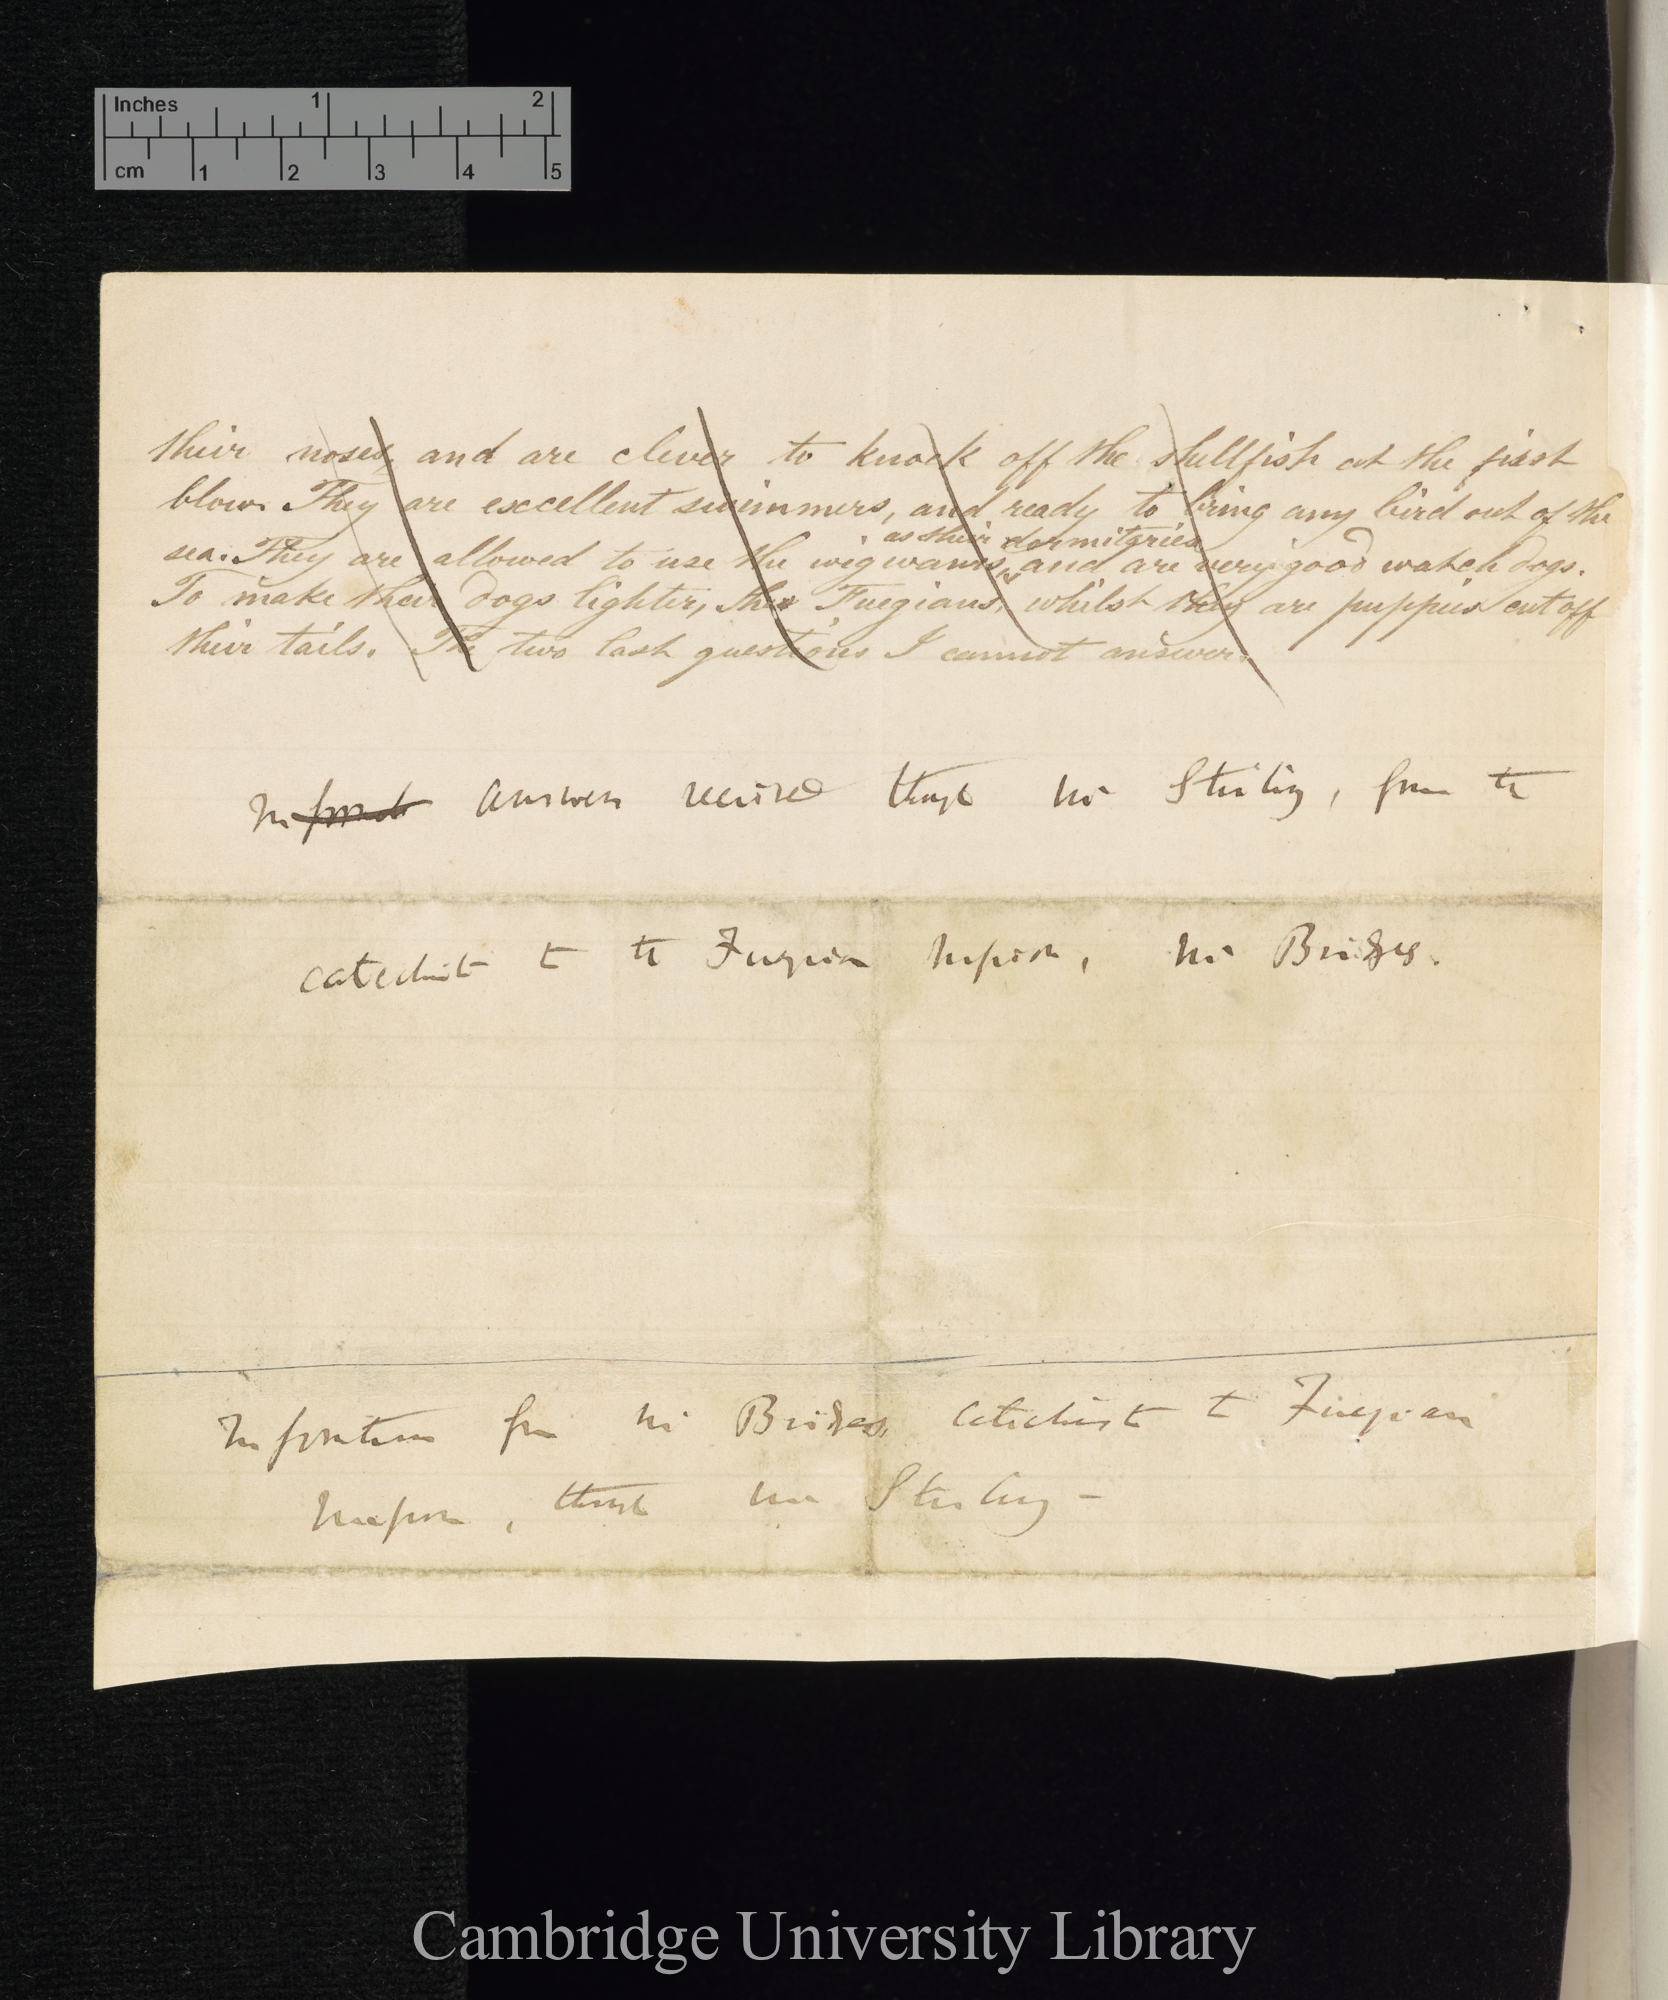 Inches 1 2
cm 1 2 3 4 5
their noses, and are clever to knock off the shellfish at the first
blow. They are excellent swimmers, and ready to bring any bird out of the
as their dormitories
sea. They are allowed to use the wigwams, and are very good watch dogs.
To make their dogs lighter, the Fuegians, whilst they are puppies cut off
their tails. The two last questions I cannot answer.
Answers received through Mr Stirling, from the
catechist to the Fuegian Mission, Mr Bridges.
Information from Mr Bridges, catechist to Fuegian
Mission, through Mr Stirling –
Cambridge University Library